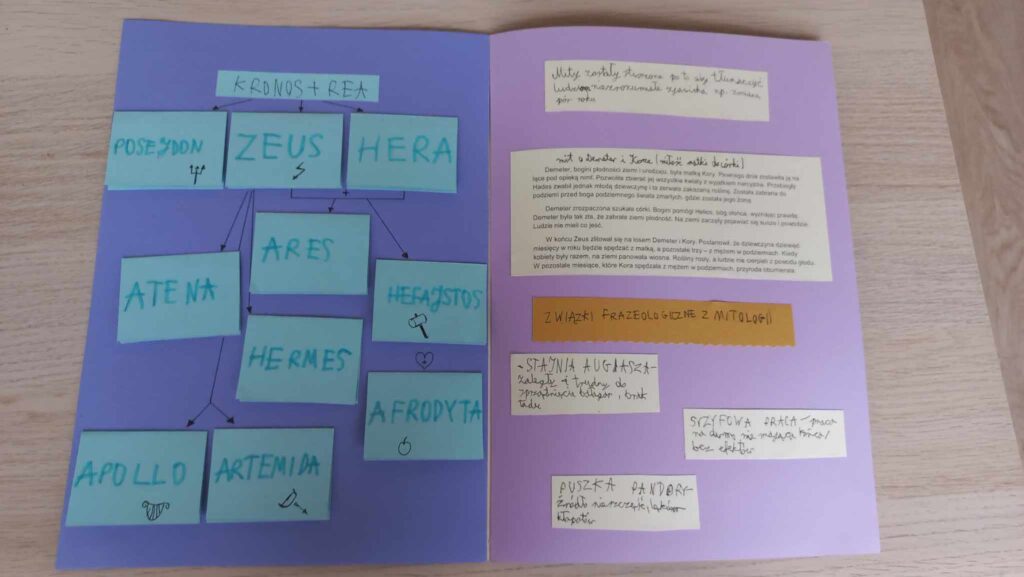 KRONOS + REA
POSEJDON
ZEUS
HERA
ARES
ATENA
HEFAJSTOS
HERMES
AFRODYTA
APOLLO
ARTEMIDA
Mity zostały stworzone po to aby tłumaczyć
ludziom niezrozumiałe zjawiska np. zmiana
pór roku
mit o Demeter i Korze (miłość matki do córki)
Demeter, bogini płodności ziemi i urodzaju, była matką Kory. Pewnego dnia zostawiła ją na
łące pod opieką nimf. Pozwoliła zbierać jej wszystkie kwiaty z wyjątkiem narcyzów. Przebiegły
Hades zwabił jednak młodą dziewczynę i ta zerwała zakazaną roślinę. Została zabrana do
podziemi przed boga podziemnego świata zmarłych, gdzie została jego żoną.
Demeter zrozpaczona szukała córki. Bogini pomógł Helios, bóg słońca, wyznać prawdę.
Demeter była tak zła, że zabrała ziemi płodność. Na ziemi zaczęły pojawiać się susze i powodzie.
Ludzie nie mieli co jeść.
W końcu Zeus zlitował się na losem Demeter i Kory. Postanowił, że dziewczyna dziewięć
miesięcy w roku będzie spędzać z matką, a pozostałe trzy – z mężem w podziemiach. Kiedy
kobiety były razem, na ziemi panowała wiosna. Rośliny rosły, a ludzie nie cierpieli z powodu głodu.
W pozostałe miesiące, które Kora spędzała z mężem w podziemiach, przyroda obumierała.
ZWIĄZKI FRAZEOLOGICZNE Z MITOLOGII
- STAJNIA AUGIASZA -
zaległy i trudny do
sprzątnięcia bałagan, brak
ładu
SYZYFOWA PRACA - praca
na darmo, nie mająca końca,
bez efektów
PUSZKA PANDORY -
źródło nieszczęść,
kłopotów